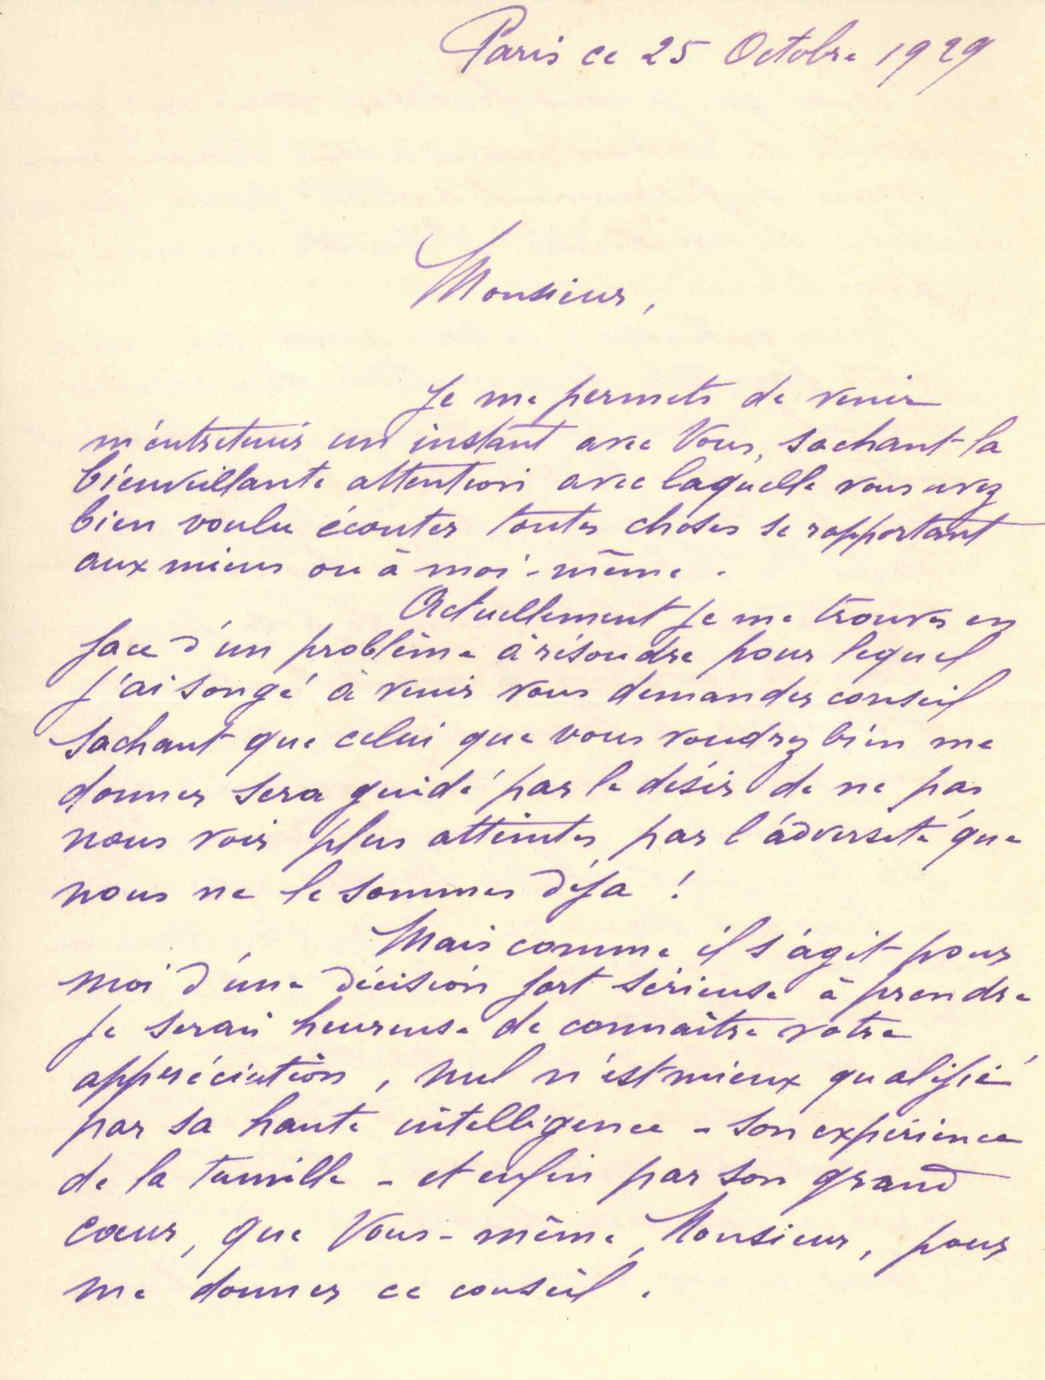 Paris ce 25 Octobre 1929
Monsieur,
Je me permets de venir
m'entretenir un instant avec Vous, sachant la
bienveillante attention avec laquelle vous avez
bien voulu écouter toutes choses se rapportant
aux miens ou à moi-même.
Actuellement je me trouve en
face d'un problème à résoudre pour lequel
j'ai songé à venir vous demander conseil
sachant que celui que vous voudrez bien me
donner sera guidé par le désir de ne pas
nous voir plus atteintes par l'adversité que
nous ne le sommes déjà !
Mais comme il s'agit pour
moi d'une décision fort sérieuse à prendre
je serais heureuse de connaître votre
appréciation, nul n'est mieux qualifié
par sa haute intelligence - son expérience
de la famille - et enfin par son grand
cœur, que Vous-même, Monsieur, pour
me donner ce conseil.